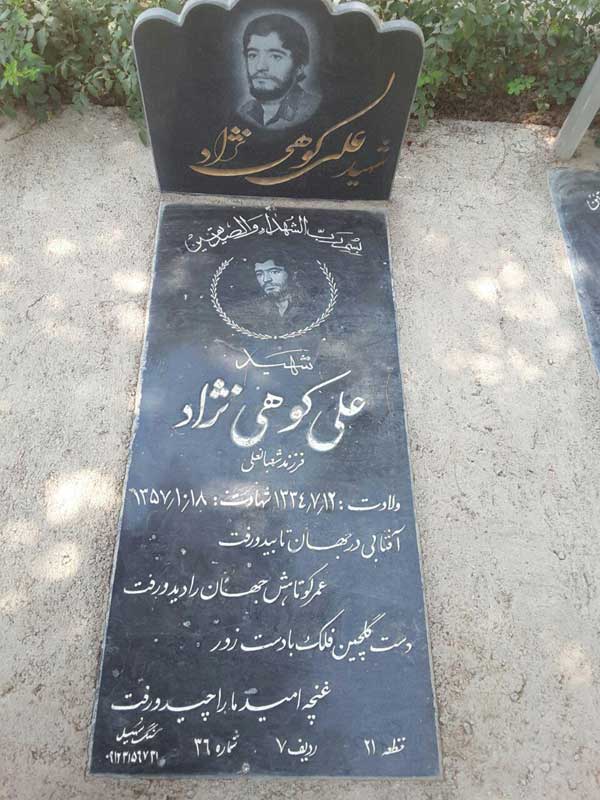 شهید علی کوهی نژاد
بسم ربّ الشهداء والصدیقین
شهید
علی کوهی نژاد
فرزند شعبانعلی
ولادت: ۱۳۳۴٫۷٫۱۲ شهادت: ۱۳۵۷٫۱۰٫۱۸
آفتابی در جهان تابید و رفت
عمر کوتاهش جهان را دید و رفت
دست گلچین فلک با دست زور
غنچه امید ما را چید و رفت
قطعه ۲۱ ردیف ۷ شماره ۳۶
سنگ سهیل
۰۹۱۲۳۱۵۶۷۳۱